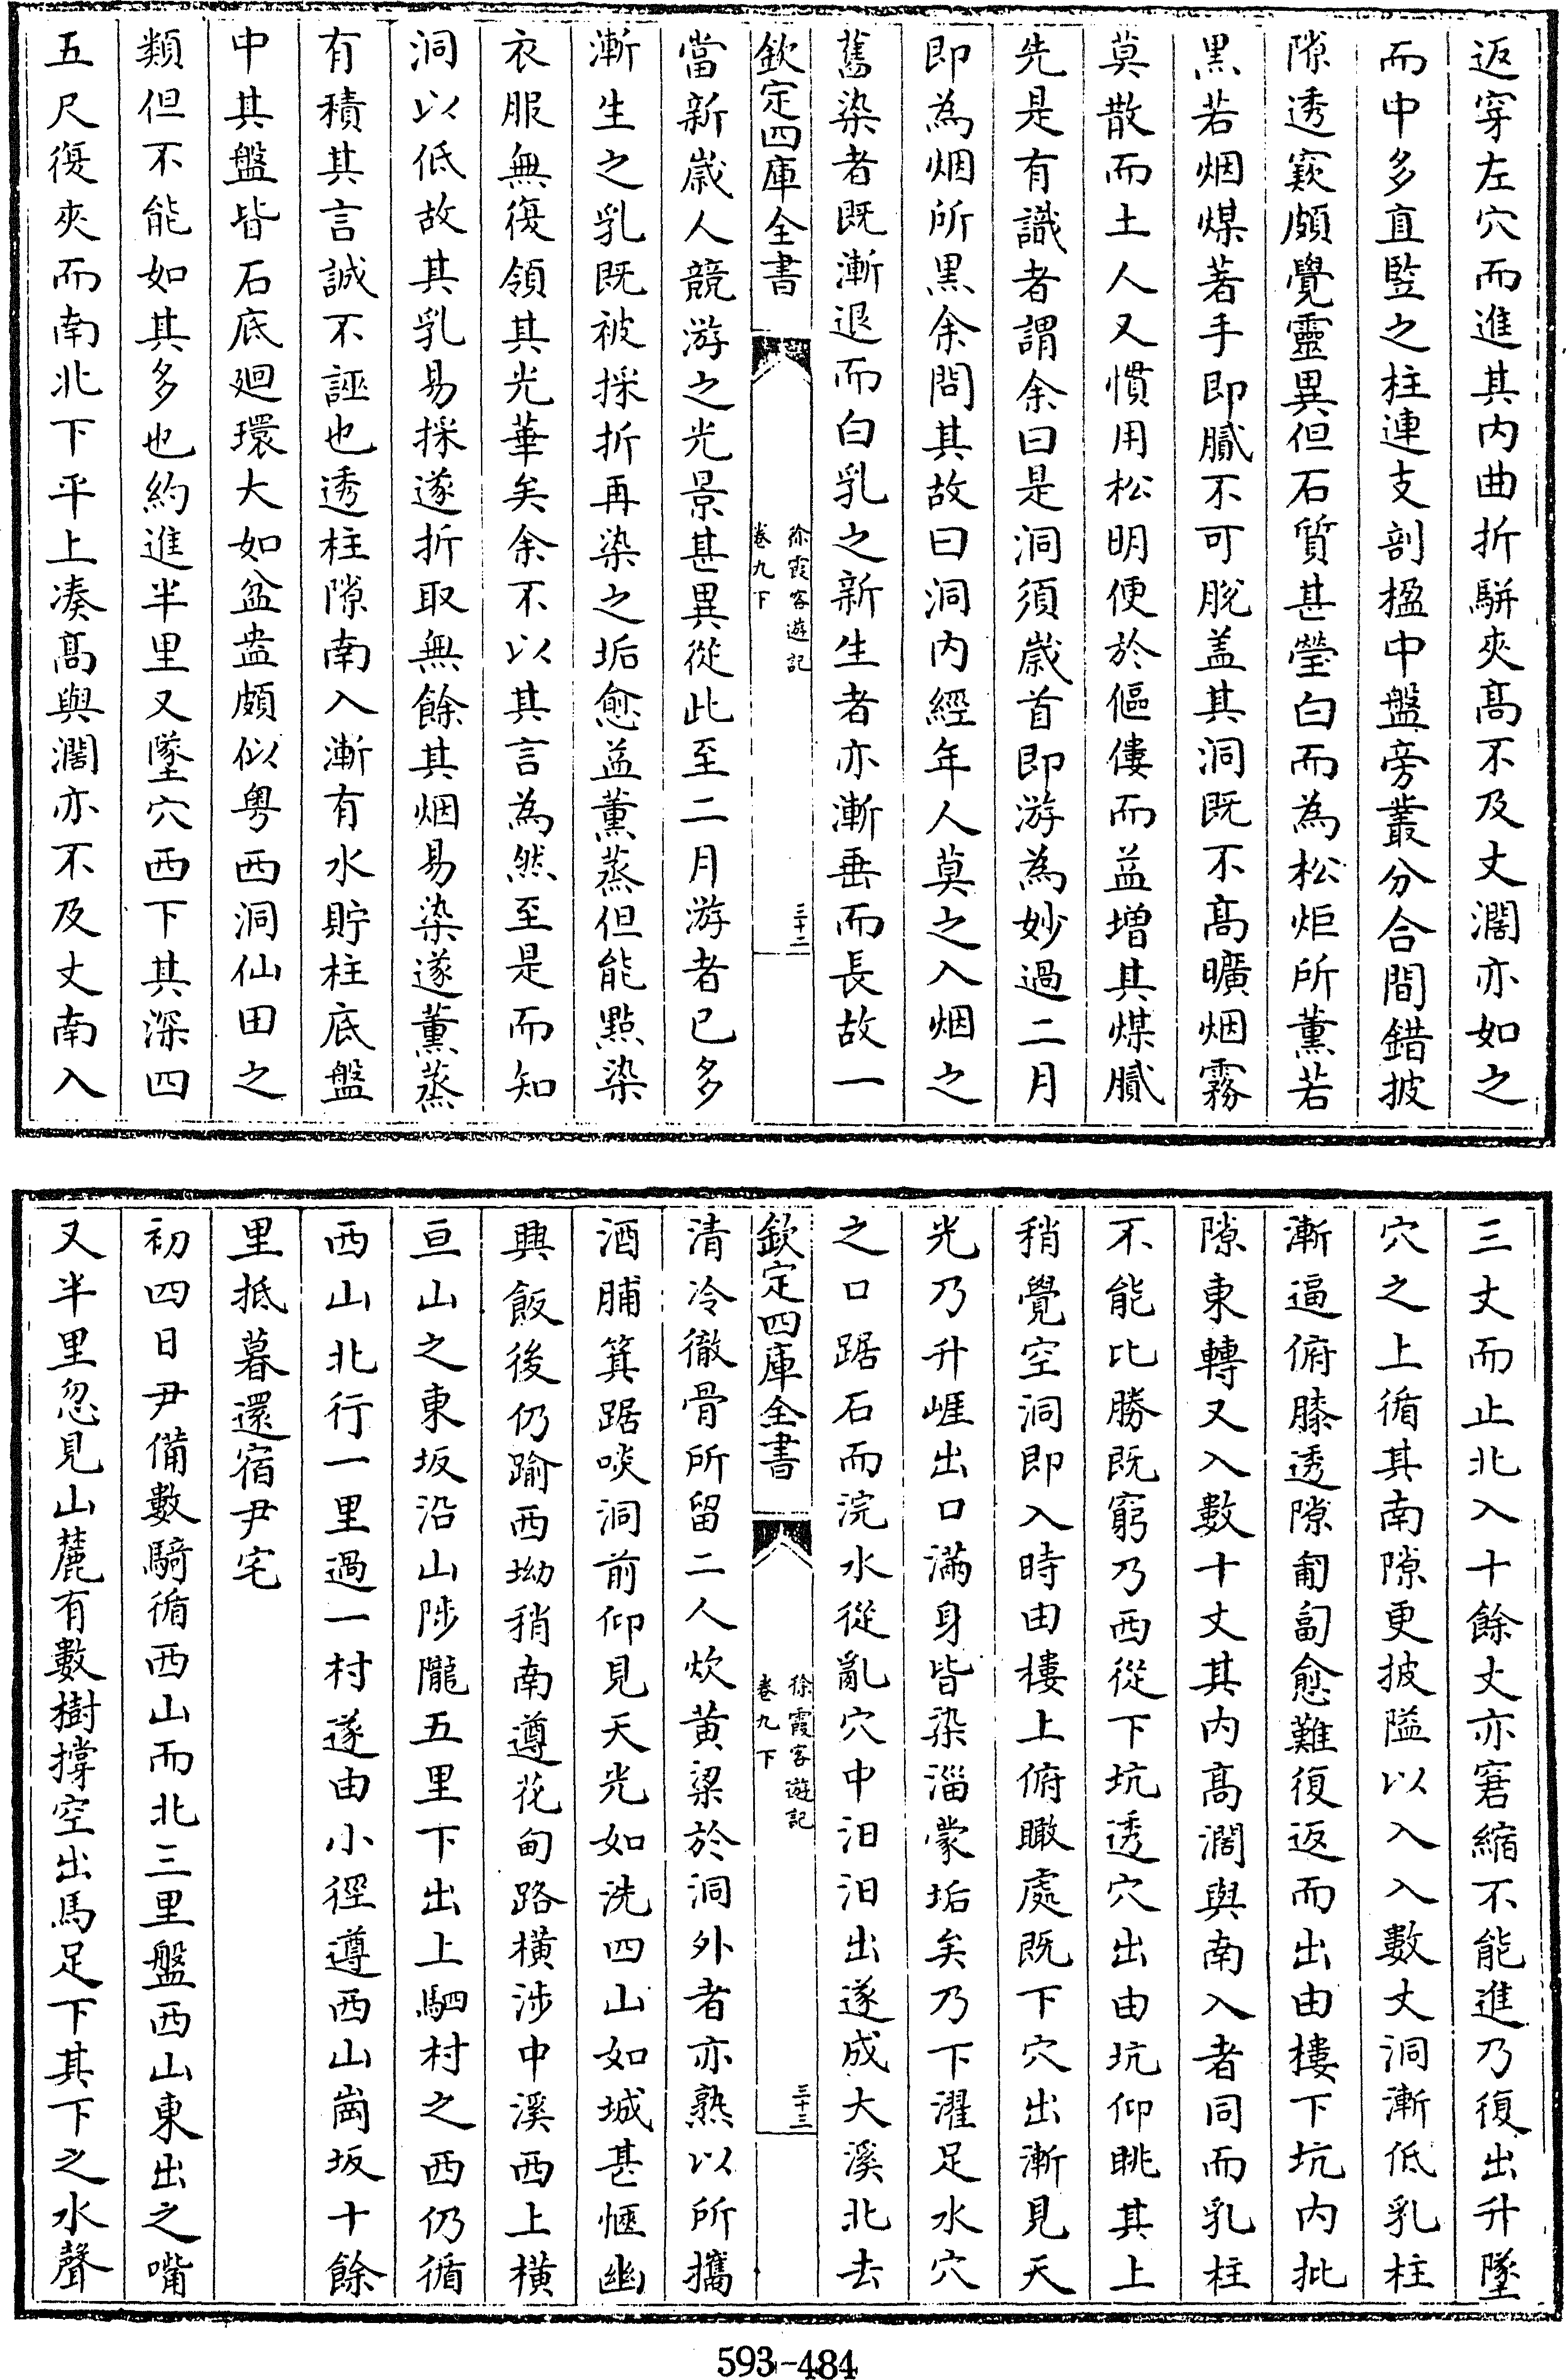 返穿左穴而進其内曲折駢夾髙不及丈濶亦如之
而中多直竪之柱連支剖楹中盤旁叢分合間錯披
隙透竅頗覺靈異但石質甚瑩白而為松炬所薰若
黒若烟煤著手即膩不可脱盖其洞既不髙曠烟霧
莫散而土人又慣用松明便於傴僂而益增其煤膩
先是有識者謂余曰是洞須歲首即游為妙過二月
即為烟所黒余問其故曰洞内經年人莫之入烟之
舊染者既漸退而白乳之新生者亦漸垂而長故一
欽定四庫全書
徐霞客遊記
卷九下
三十二
當新歲人競游之光景甚異從此至二月游者已多
漸生之乳既被採折再染之垢愈益薰蒸但能點染
衣服無復領其光華矣余不以其言為然至是而知
洞以低故其乳易採遂折取無餘其烟易染遂薰蒸
有積其言誠不誣也透柱隙南入漸有水貯柱底盤
中其盤皆石底廻環大如盆盎頗似粤西洞仙田之
類但不能如其多也約進半里又墜穴西下其深四
五尺復夾而南北下平上凑髙與濶亦不及丈南入
三丈而止北入十餘丈亦窘縮不能進乃復出升墜
穴之上循其南隙更披隘以入入數丈洞漸低乳柱
漸逼俯膝透隙匍匐愈難復返而出由樓下坑内批
隙東轉又入數十丈其内髙濶與南入者同而乳柱
不能比勝既窮乃西從下坑透穴出由坑仰眺其上
稍覺空洞即入時由樓上俯瞰處既下穴出漸見天
光乃升崕出口滿身皆染淄蒙垢矣乃下濯足水穴
之口踞石而浣水從亂穴中汨汨出遂成大溪北去
欽定四庫全書
徐霞客遊記
卷九下
三十三
清冷徹骨所留二人炊黄粱於洞外者亦熟以所攜
酒脯箕踞啖洞前仰見天光如洗四山如城甚愜幽
興飯後仍踰西坳稍南遵花甸路横涉中溪西上横
亘山之東坂沿山陟隴五里下出上駟村之西仍循
西山北行一里過一村遂由小徑遵西山崗坂十餘
里抵暮還宿尹宅
初四日尹備數騎循西山而北三里盤西山東出之嘴
又半里忽見山麓有數樹撐空出馬足下其下之水聲
593-484